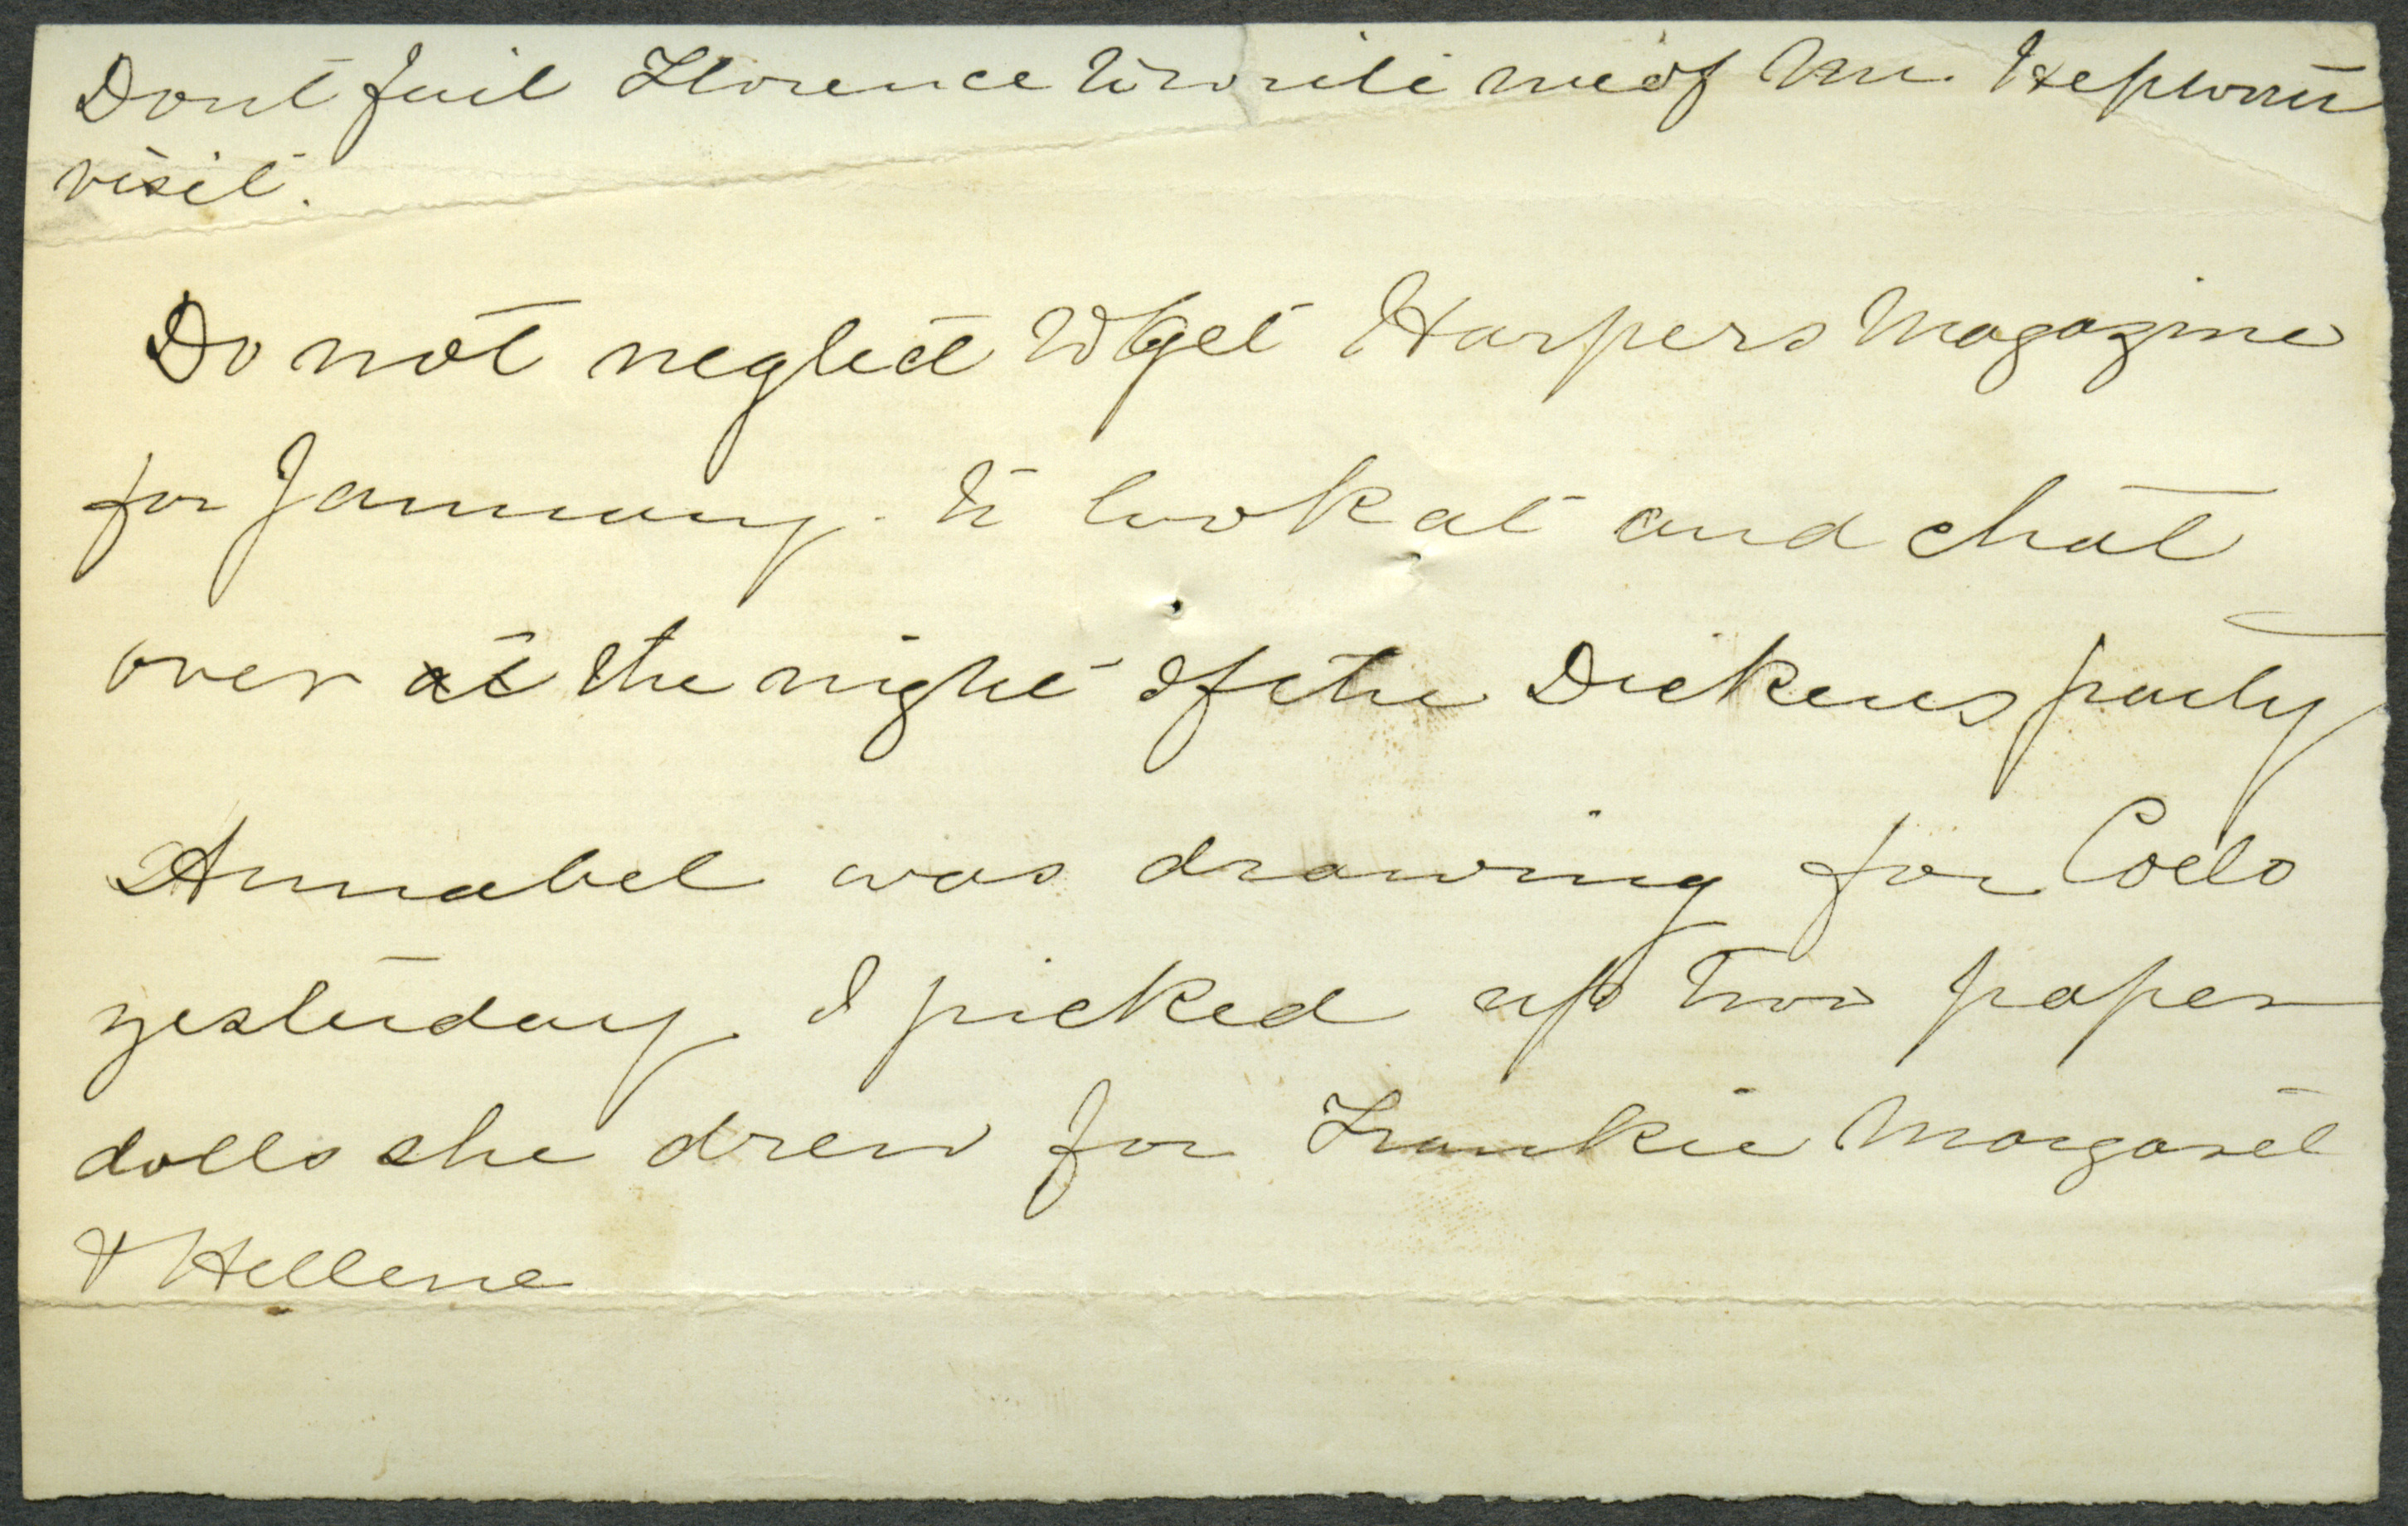 Dont fail Florence to write me of Mr. Hepworth
visit.
Do not neglect to get Harpers Magazine
for January. to look at and chat
over at the night of the Dickens party
Annabel was drawing for Coelo
yesterday. I picked up two paper
dolls she drew for Frankie Margaret
& Hellene